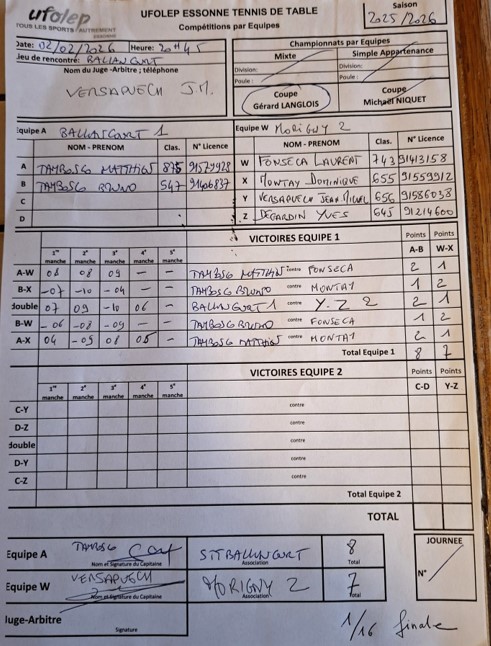 ufolep
TOUS LES SPORTS AUTREMENT
ESSONNE
UFOLEP ESSONNE TENNIS DE TABLE
Compétitions par Equipes
Saison
2025/2026
Date: 02/02/2026 Heure: 20H45
Lieu de rencontré: BALLANCOURT
Nom du Juge-Arbitre ; téléphone
VERSAPUECH J.M.
Championnats par Equipes
Mixte
Simple Appartenance
Division:
Division:
Poule :
Poule :
Coupe
Gérard LANGLOIS
Coupe
Michaël NIQUET
Equipe A BALLANCOURT 1
Equipe W MORIGNY 2
NOM - PRENOM Clas. N° Licence
NOM - PRENOM Clas. N° Licence
A TAMBOSCO MATTHIAS 875 91579928
W FONSECA LAURENT 743 91413158
B TAMBOSCO BRUNO 547 91406837
X MONTAY DOMINIQUE 655 91559912
C
Y VERSAPUECH JEAN MICHEL 656 91586038
D
Z DEGARDIN YVES 645 91214600
VICTOIRES EQUIPE 1
Points Points
1ère manche 2e manche 3e manche 4e manche 5e manche
A-B W-X
A-W 08 08 09 - - TAMBOSCO MATTHIAS contre FONSECA 2 1
B-X -07 -10 -04 - - TAMBOSCO BRUNO contre MONTAY 1 2
double 07 09 -10 06 - BALLANCOURT 1 contre Y.Z 2 2 1
B-W -06 -08 -09 - - TAMBOSCO BRUNO contre FONSECA 1 2
A-X 04 -09 08 05 - TAMBOSCO MATTHIAS contre MONTAY 2 1
Total Equipe 1 8 7
VICTOIRES EQUIPE 2
Points Points
1ère manche 2e manche 3e manche 4e manche 5e manche
C-D Y-Z
C-Y contre
D-Z contre
double contre
D-Y contre
C-Z contre
Total Equipe 2
TOTAL
Equipe A TAMBOSCO STTBALLANCOURT 8
Nom et Signature du Capitaine Association Total
JOURNEE
N°
Equipe W VERSAPUECH MORIGNY 2 7
Nom et Signature du Capitaine Association Total
Juge-Arbitre
Signature
1/16 finale